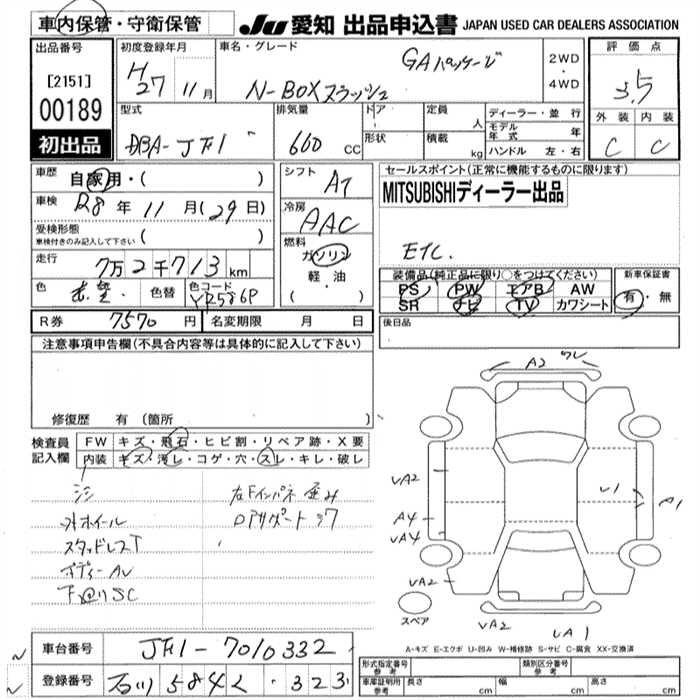 車内保管・守衛保管
JU 愛知 出品申込書 JAPAN USED CAR DEALERS ASSOCIATION
出品番号
[2151]
00189
初出品
初度登録年月
H27 11月
車名・グレード
N-BOXスラッシュ
GAパッケージ
2WD
・
4WD
評価点
3.5
外装 内装
C C
型式
DBA-JF1
排気量
660 CC
ドア・
形状
定員 人
積載 kg
ディーラー・並行
モデル年式 年
ハンドル 左・右
車歴 自家用・( )
車検 R8年11月(29日)
受検形態
車検付きのみ記入して下さい ( )
走行 7万2千713km
色 色替 色コード
YR586P
シフト AT
冷房 AAC
燃料
ガソリン
軽・油
( )
セールスポイント(正常に機能するものに限ります)
MITSUBISHIディーラー出品
ETC.
装備品(純正品に限り○をつけてください)
PS PW エアB AW
SR ナビ TV カワシート
新車保証書
有・無
R券 7570円 名変期限 月 日
後日品
注意事項申告欄(不具合内容等は具体的に記入して下さい)
修復歴 有 (箇所 )
検査員記入欄
FW キズ・飛石・ヒビ割・リペア跡・X要
内装 キズ・汚レ・コゲ・穴・スレ・キレ・破レ
外ホイール
スタッドレスT
ボディーAU
左Fインパネ歪み
A2
UA2
A4
UA4
UA2
U1
A1
UA2
UA1
スペア
A-キズ E-エクボ U-凹み W-補修跡 S-サビ C-腐食 XX-交換済
車台番号 JF1-7010332
登録番号 石川 584 323
形式指定番号
参考
類別区分番号
参考
車庫証明用
参考
長さ cm 幅 cm 高さ cm